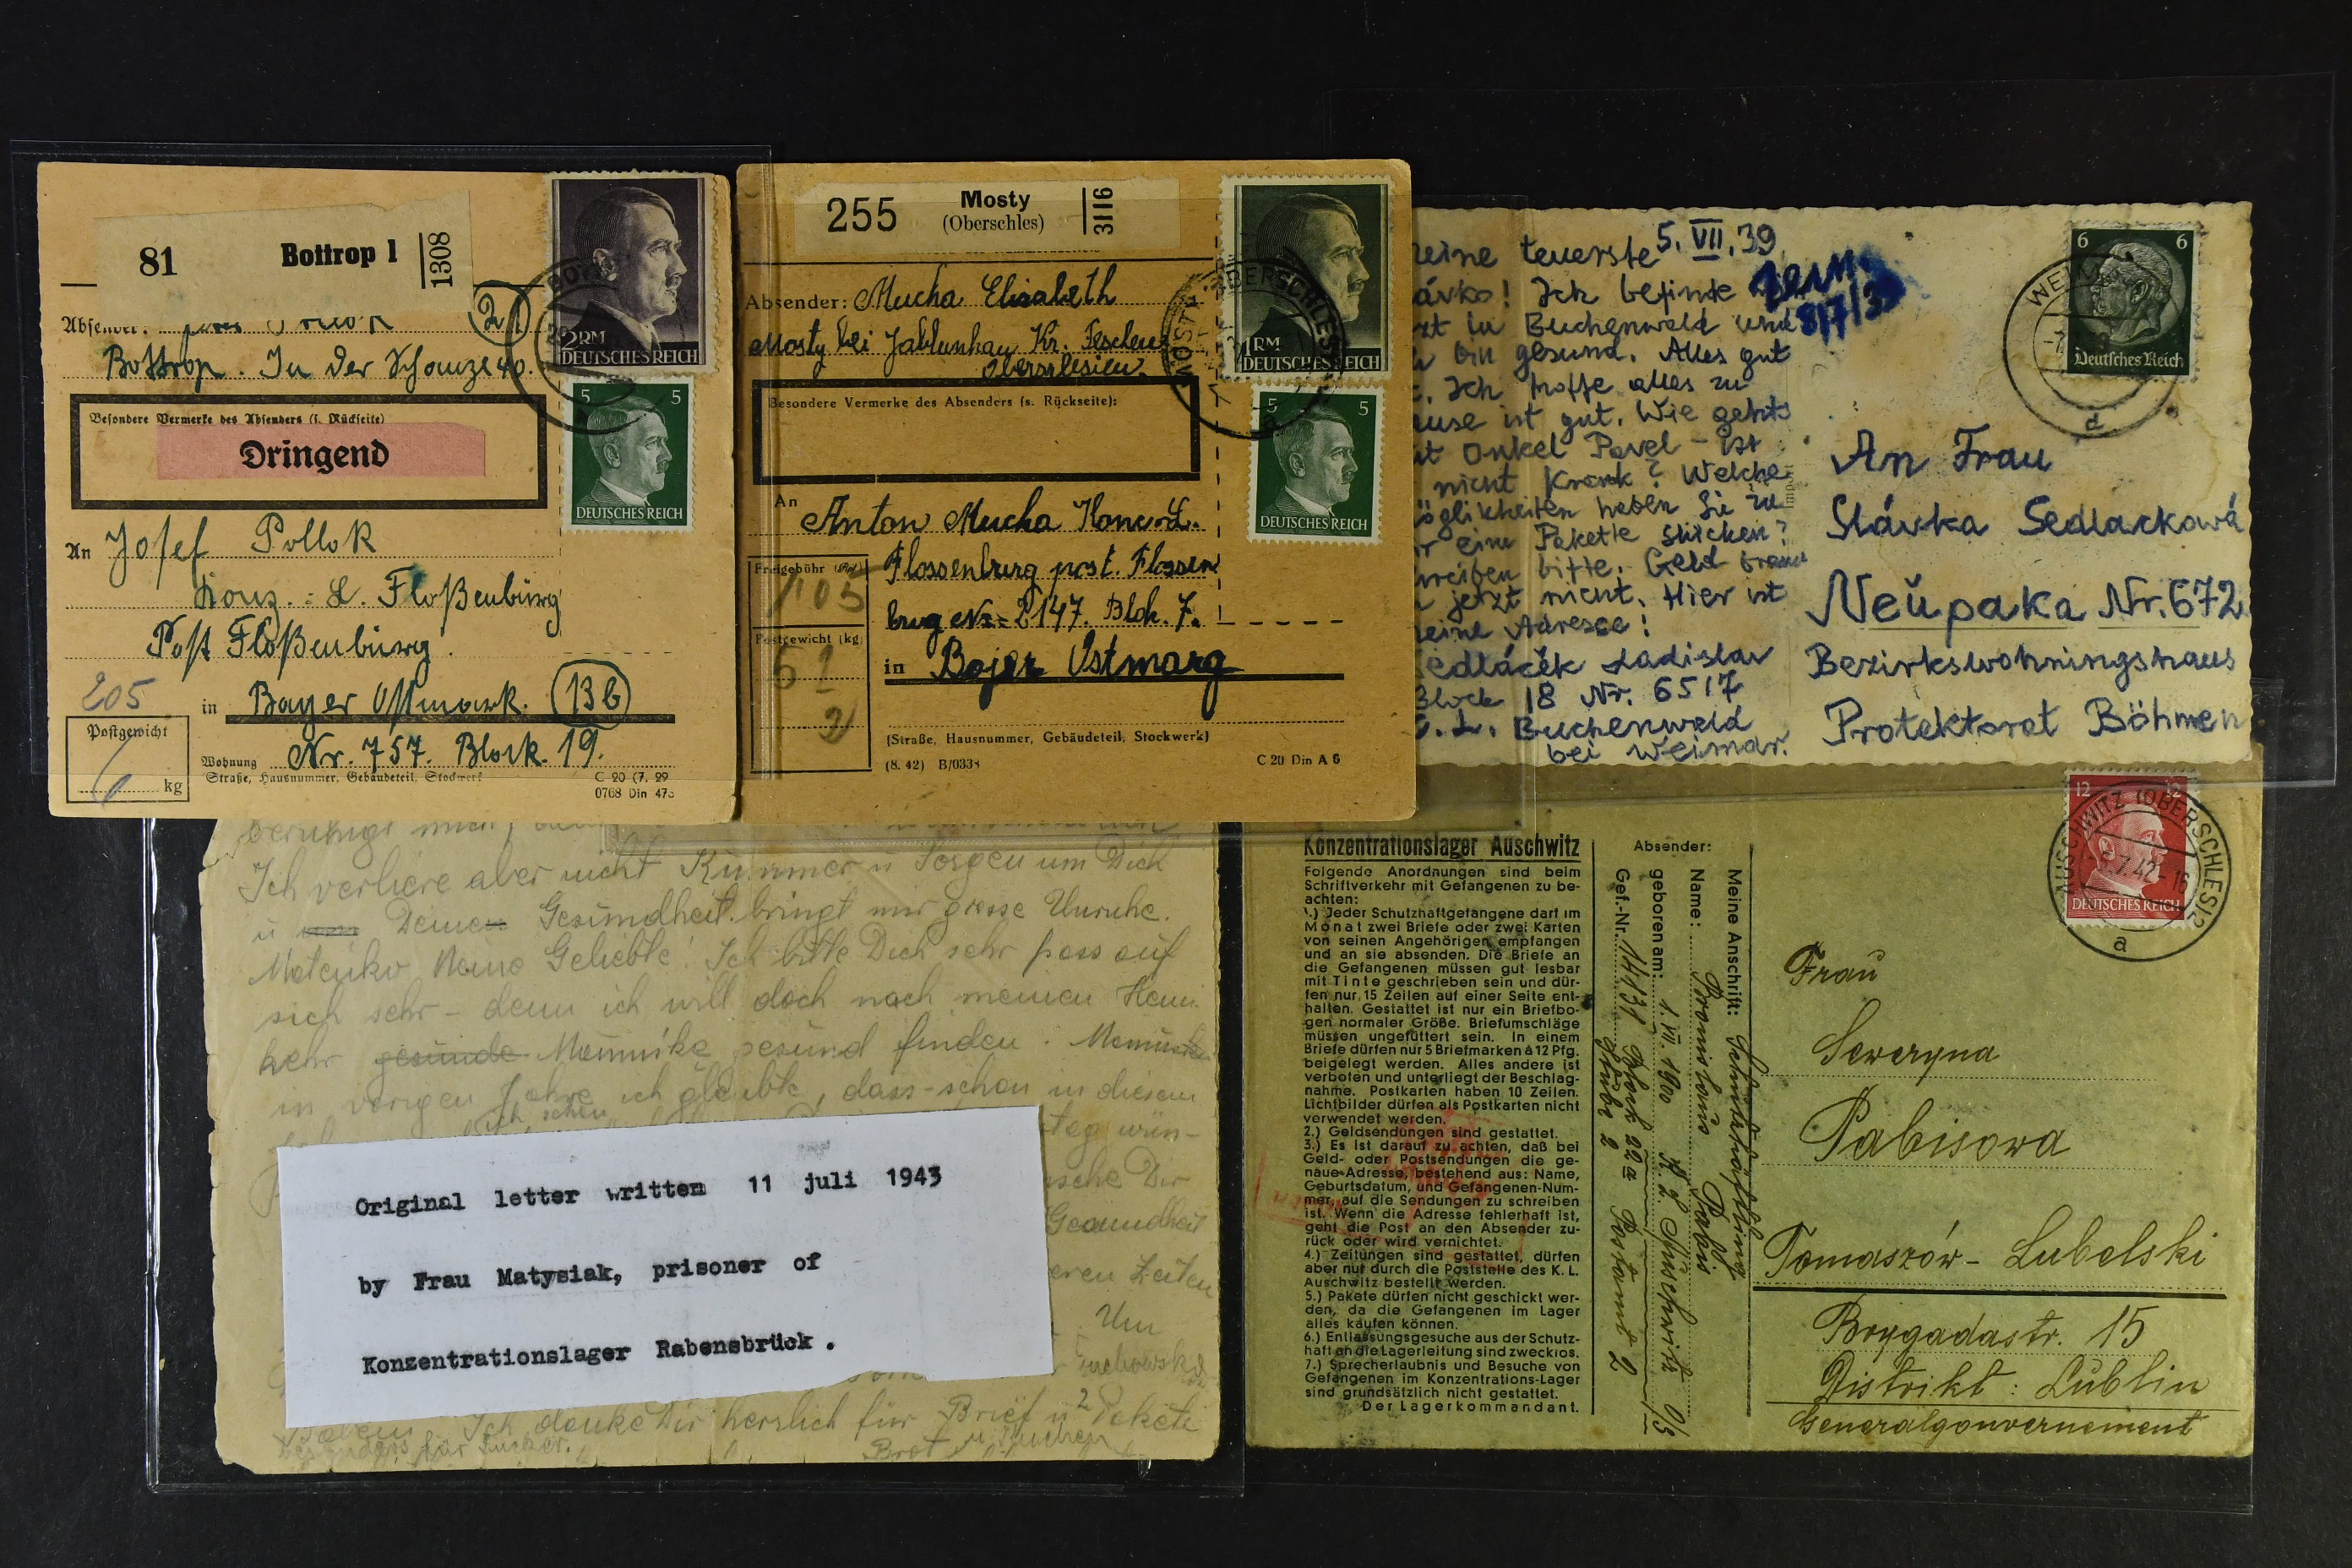 81
Bottrop 1
1308
2
Bottrop. In der Schanze 40.
Besondere Vermerke des Absenders (s. Rückseite)
Dringend
An Josef Pollok
Konz.=L. Floßenbürg
Post Floßenbürg.
205
in Bayer Ostmark. (13b)
Postgewicht
6 kg
Wohnung Nr. 757. Block. 19.
Straße, Hausnummer, Gebäudeteil, Stockwerk
C 20 (7. 29
0768 Din 475
2RM
DEUTSCHES REICH
5 5
DEUTSCHES REICH
255
Mosty
(Oberschles)
3116
Absender: Mucha Elisabeth
Mosty bei Jablunkau Kr. Teschen
Oberschlesien.
Besondere Vermerke des Absenders (s. Rückseite):
An
Anton Mucha Konc. L.
Flossenburg post. Flossen
burg Nr = 2147. Blok. 7.
Freigebühr
105
Postgewicht (kg)
51
2
in Bojer Ostmarg
(Straße, Hausnummer, Gebäudeteil, Stockwerk)
(8. 42) B/0338
C 20 Din A 6
1RM
DEUTSCHES REICH
5 5
DEUTSCHES REICH
eine teuerste 5. VII. 39
ávko! Ich befinde
zt in Buchenwald und
bin gesund. Alles gut
. Ich hoffe alles zu
ause ist gut. Wie gehts
Onkel Pavel – ist
nicht Krank? Welche
öglikheiten haben Sie zu
r eine Pakette shicken?
hreiben bitte. Geld brauc
jetzt nicht. Hier ist
eine Adresse!
edláček Ladislav
Block 18 Nr. 6517
. L. Buchenwald
bei Weimar.
8/7/39
6 6
Deutsches Reich
WEIMAR
d
An Frau
Slávka Sedlackowá
Neŭpaka Nr. 672
Bezirkswohningshaus
Protektorat Böhmen
beruhigt mich,
Ich verliere aber nicht Kummer u Sorgen um Dich
u Deine Gesundheit bringt mir grosse Unruhe.
Matenko Meine Geliebte! Ich bitte Dich sehr pass auf
sich sehr – denn ich will doch nach meinen Heim
kehr gesunde Mamuśke gesund finden.
in vorigen Jahre ich glaubte, dass schon in diesem
ich schon
wün-
sche Dir
Gesundheit
eren Zeiten
Um
Ich danke Dir herzlich für Brief u 2 Pakete
für Zucker.
Brot u Kuchen
Original letter written 11 juli 1943
by Frau Matysiak, prisoner of
Konzentrationslager Rabensbrück.
Konzentrationslager Auschwitz
Folgende Anordnungen sind beim
Schriftverkehr mit Gefangenen zu be-
achten:
1.) Jeder Schutzhaftgefangene darf im
Monat zwei Briefe oder zwei Karten
von seinen Angehörigen empfangen
und an sie absenden. Die Briefe an
die Gefangenen müssen gut lesbar
mit Tinte geschrieben sein und dür-
fen nur 15 Zeilen auf einer Seite ent-
halten. Gestattet ist nur ein Briefbo-
gen normaler Größe. Briefumschläge
müssen ungefüttert sein. In einem
Briefe dürfen nur 5 Briefmarken à 12 Pfg.
beigelegt werden. Alles andere ist
verboten und unterliegt der Beschlag-
nahme. Postkarten haben 10 Zeilen.
Lichtbilder dürfen als Postkarten nicht
verwendet werden.
2.) Geldsendungen sind gestattet.
3.) Es ist darauf zu achten, daß bei
Geld- oder Postsendungen die ge-
naue Adresse, bestehend aus: Name,
Geburtsdatum, und Gefangenen-Num-
mer, auf die Sendungen zu schreiben
ist. Wenn die Adresse fehlerhaft ist,
geht die Post an den Absender zu-
rück oder wird vernichtet.
4.) Zeitungen sind gestattet, dürfen
aber nur durch die Poststelle des K. L.
Auschwitz bestellt werden.
5.) Pakete dürfen nicht geschickt wer-
den, da die Gefangenen im Lager
alles kaufen können.
6.) Entlassungsgesuche aus der Schutz-
haft an die Lagerleitung sind zwecklos.
7.) Sprecherlaubnis und Besuche von
Gefangenen im Konzentrations-Lager
sind grundsätzlich nicht gestattet.
Der Lagerkommandant.
Absender:
Meine Anschrift: Schutzhäftling
Name: Bronislaus Pabis
geboren am: 1. VI. 1900 K. L. Auschwitz O/S
Gef.-Nr. 14131 Block 22a Postamt 2
Stube 2
12 12
DEUTSCHES REICH
AUSCHWITZ (OBERSCHLES) 2
7.42-16
a
Frau
Seweryna
Pabisowa
Tomaszów – Lubelski
Brygadastr. 15
Distrikt: Lublin
Generalgouvernement